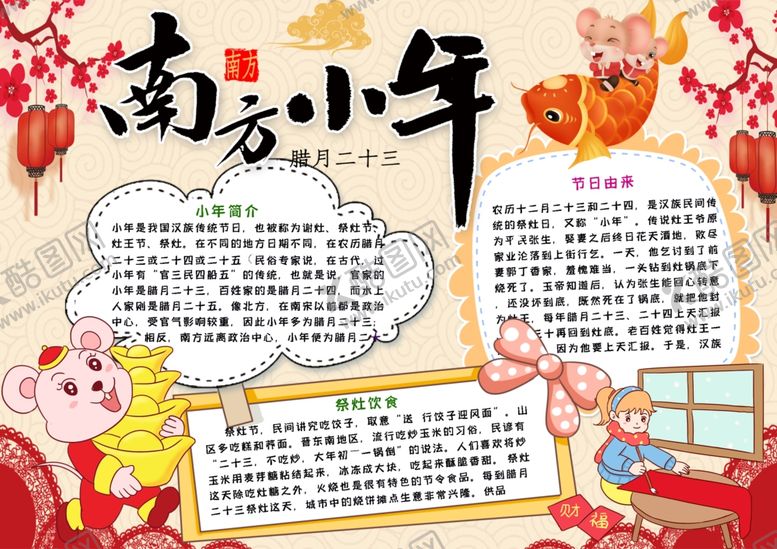 南方小年
南方
腊月二十三
小年简介
小年是我国汉族传统节日，也被称为谢灶、祭灶节、
灶王节、祭灶。在不同的地方日期不同，在农历腊月
二十三或二十四或二十五（民俗专家说，在古代，过
小年有“官三民四船五”的传统，也就是说，官家的
小年是腊月二十三，百姓家的是腊月二十四，而水上
人家则是腊月二十五。像北方，在南宋以前都是政治
中心，受官气影响较重，因此小年多为腊月二十三；
相反，南方远离政治中心，小年便为腊月二
节日由来
农历十二月二十三和二十四，是汉族民间传
统的祭灶日，又称“小年”。传说灶王爷原
为平民张生，娶妻之后终日花天酒地，败尽
家业沦落到上街行乞。一天，他乞讨到了前
妻郭丁香家，羞愧难当，一头钻到灶锅底下
烧死了。玉帝知道后，认为张生能回心转意
，还没坏到底，既然死在了锅底，就把他封
为灶王，每年腊月二十三、二十四上天汇报
三十再回到灶底。老百姓觉得灶王一
因为他要上天汇报。于是，汉族
祭灶饮食
祭灶节，民间讲究吃饺子，取意“送 行饺子迎风面”。山
区多吃糕和荞面。晋东南地区，流行吃炒玉米的习俗，民谚有
“二十三，不吃炒，大年初一一锅倒”的说法。人们喜欢将炒
玉米用麦芽糖粘结起来，冰冻成大块，吃起来酥脆香甜。祭灶
这天除吃灶糖之外，火烧也是很有特色的节令食品。每到腊月
二十三祭灶这天，城市中的烧饼摊点生意非常兴隆。供品
财福
酷图网
www.ikutu.com